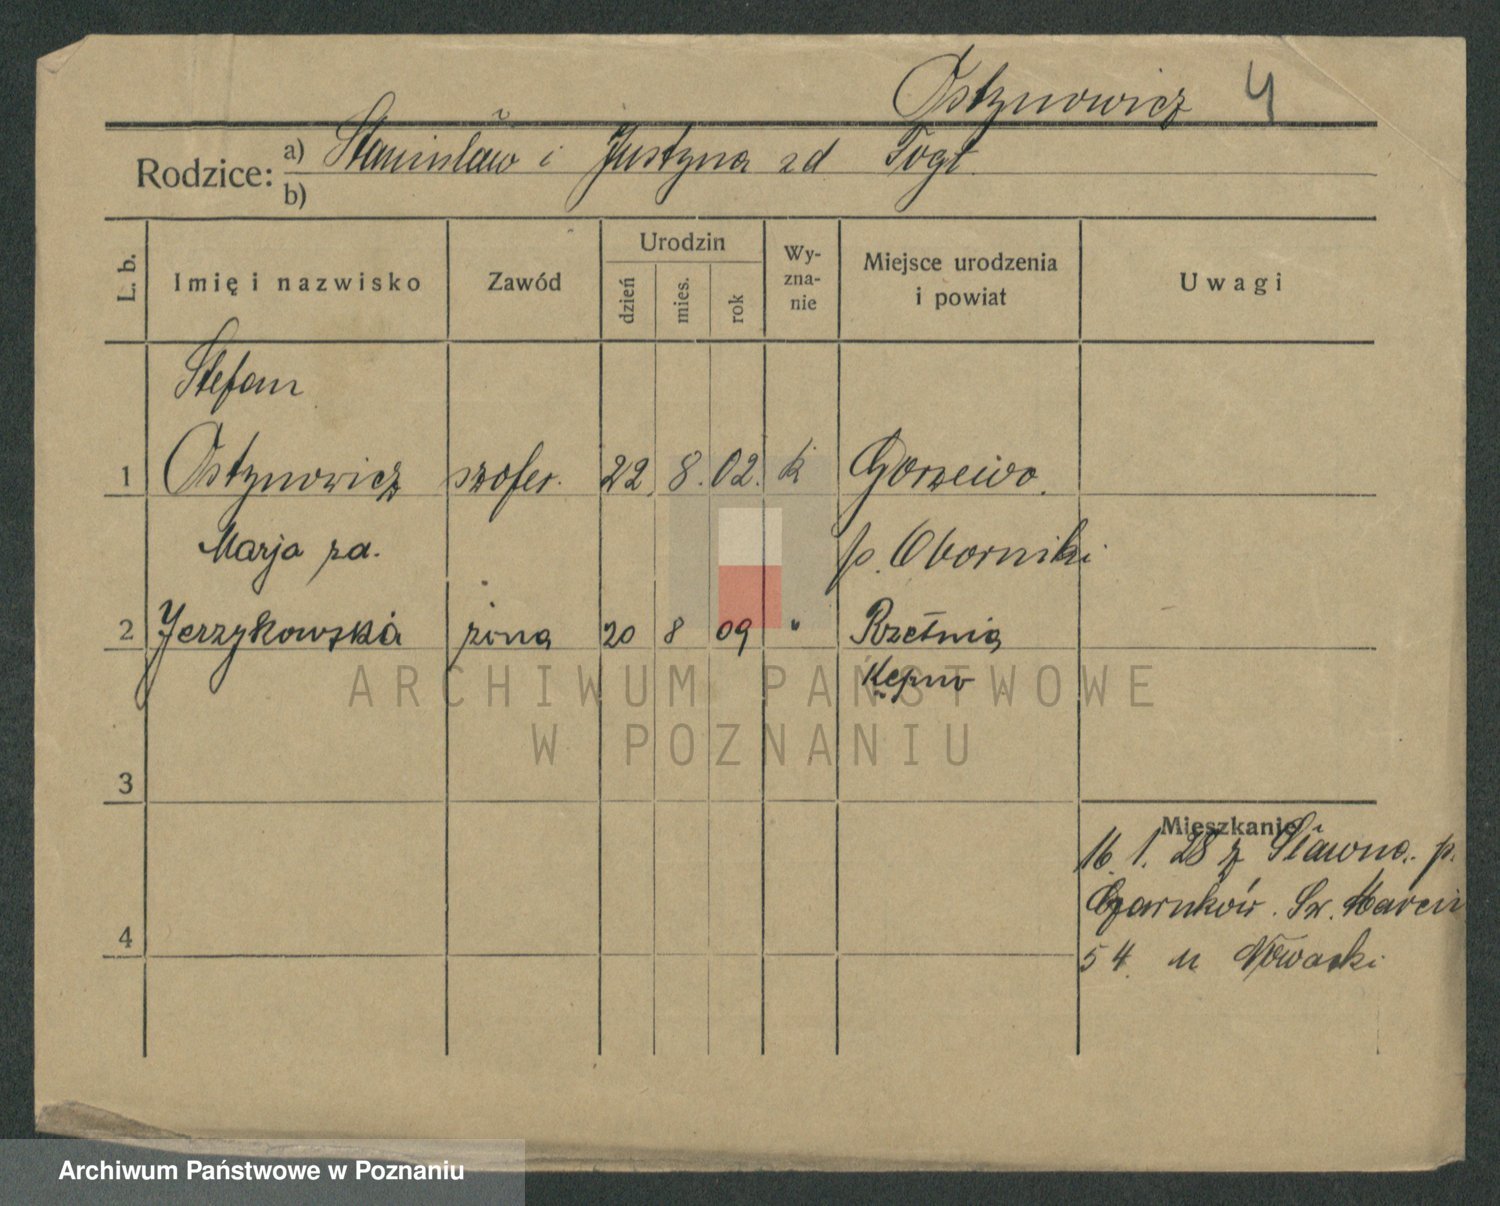 Ostynowicz 4
Rodzice: a) Stanisław i Justyna zd Fogt.
b)
L. b. Imię i nazwisko Zawód Urodzin dzień mies. rok Wy-zna-nie Miejsce urodzenia i powiat Uwagi
Stefan
1 Ostynowicz szofer. 22. 8. 02. k Gorzewo.
Marja za. p. Oborniki
2 Jerzykowska żona 20 8 09 " Rzetnia
Kępno
ARCHIWUM PAŃSTWOWE
W POZNANIU
3
Mieszkanie
16. 1. 28 z Sławna. p.
Czarnków. Św. Marcin
4
54. u Nowacki
Archiwum Państwowe w Poznaniu